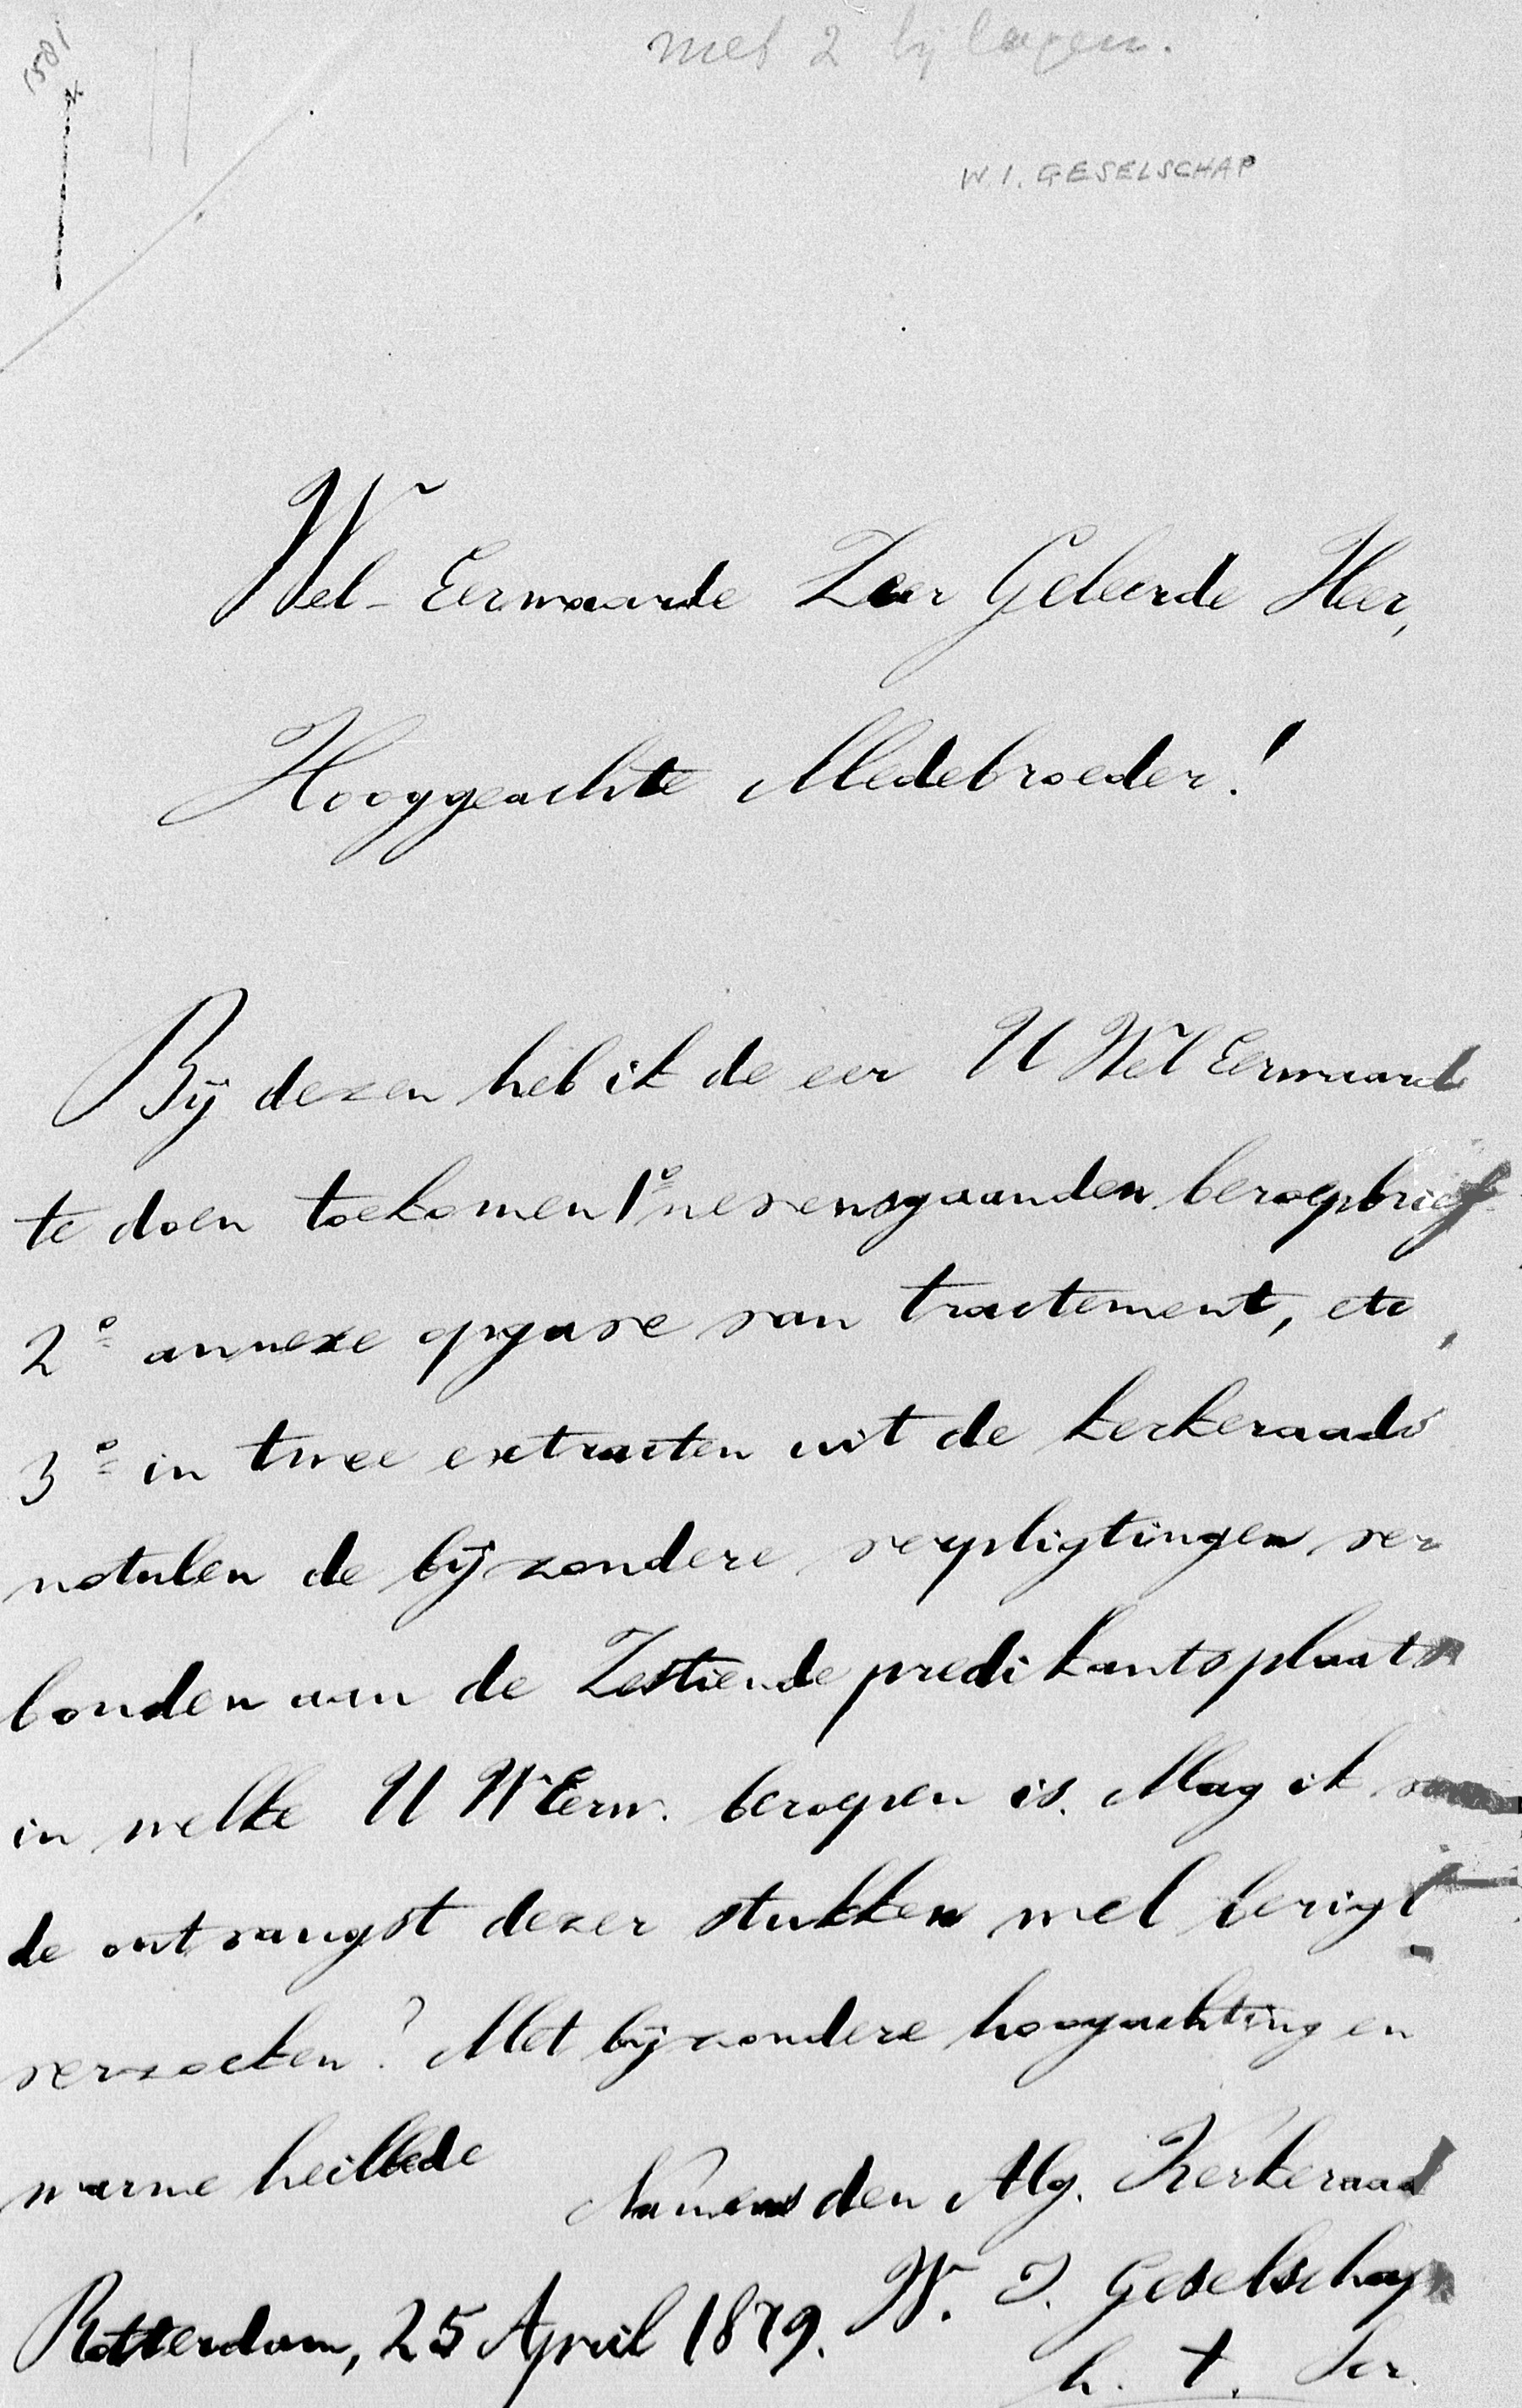 met 2 bijlagen.
W. I. GESELSCHAP
Wel-Eerwaarde Zeer Geleerde Heer,
Hooggeachte Medebroeder!
Bij dezen heb ik de eer U Wel Eerwaard
te doen toekomen 1º nevensgaanden beroepbrief
2º annexe opgave van tractement, etc,
3º in twee extracten uit de kerkeraads
notulen de bijzondere verpligtingen ver
bonden aan de Zestiende predikantsplaats
in welke U WEerw. beroepen is. Mag ik van
de ontvangst dezer stukken wel berigt
verzoeken? Met bijzondere hoogachting en
warme heilbede
Namens den Alg. Kerkeraad
W. I. Geselschap
Rotterdam, 25 April 1879.
h. t. Scr.